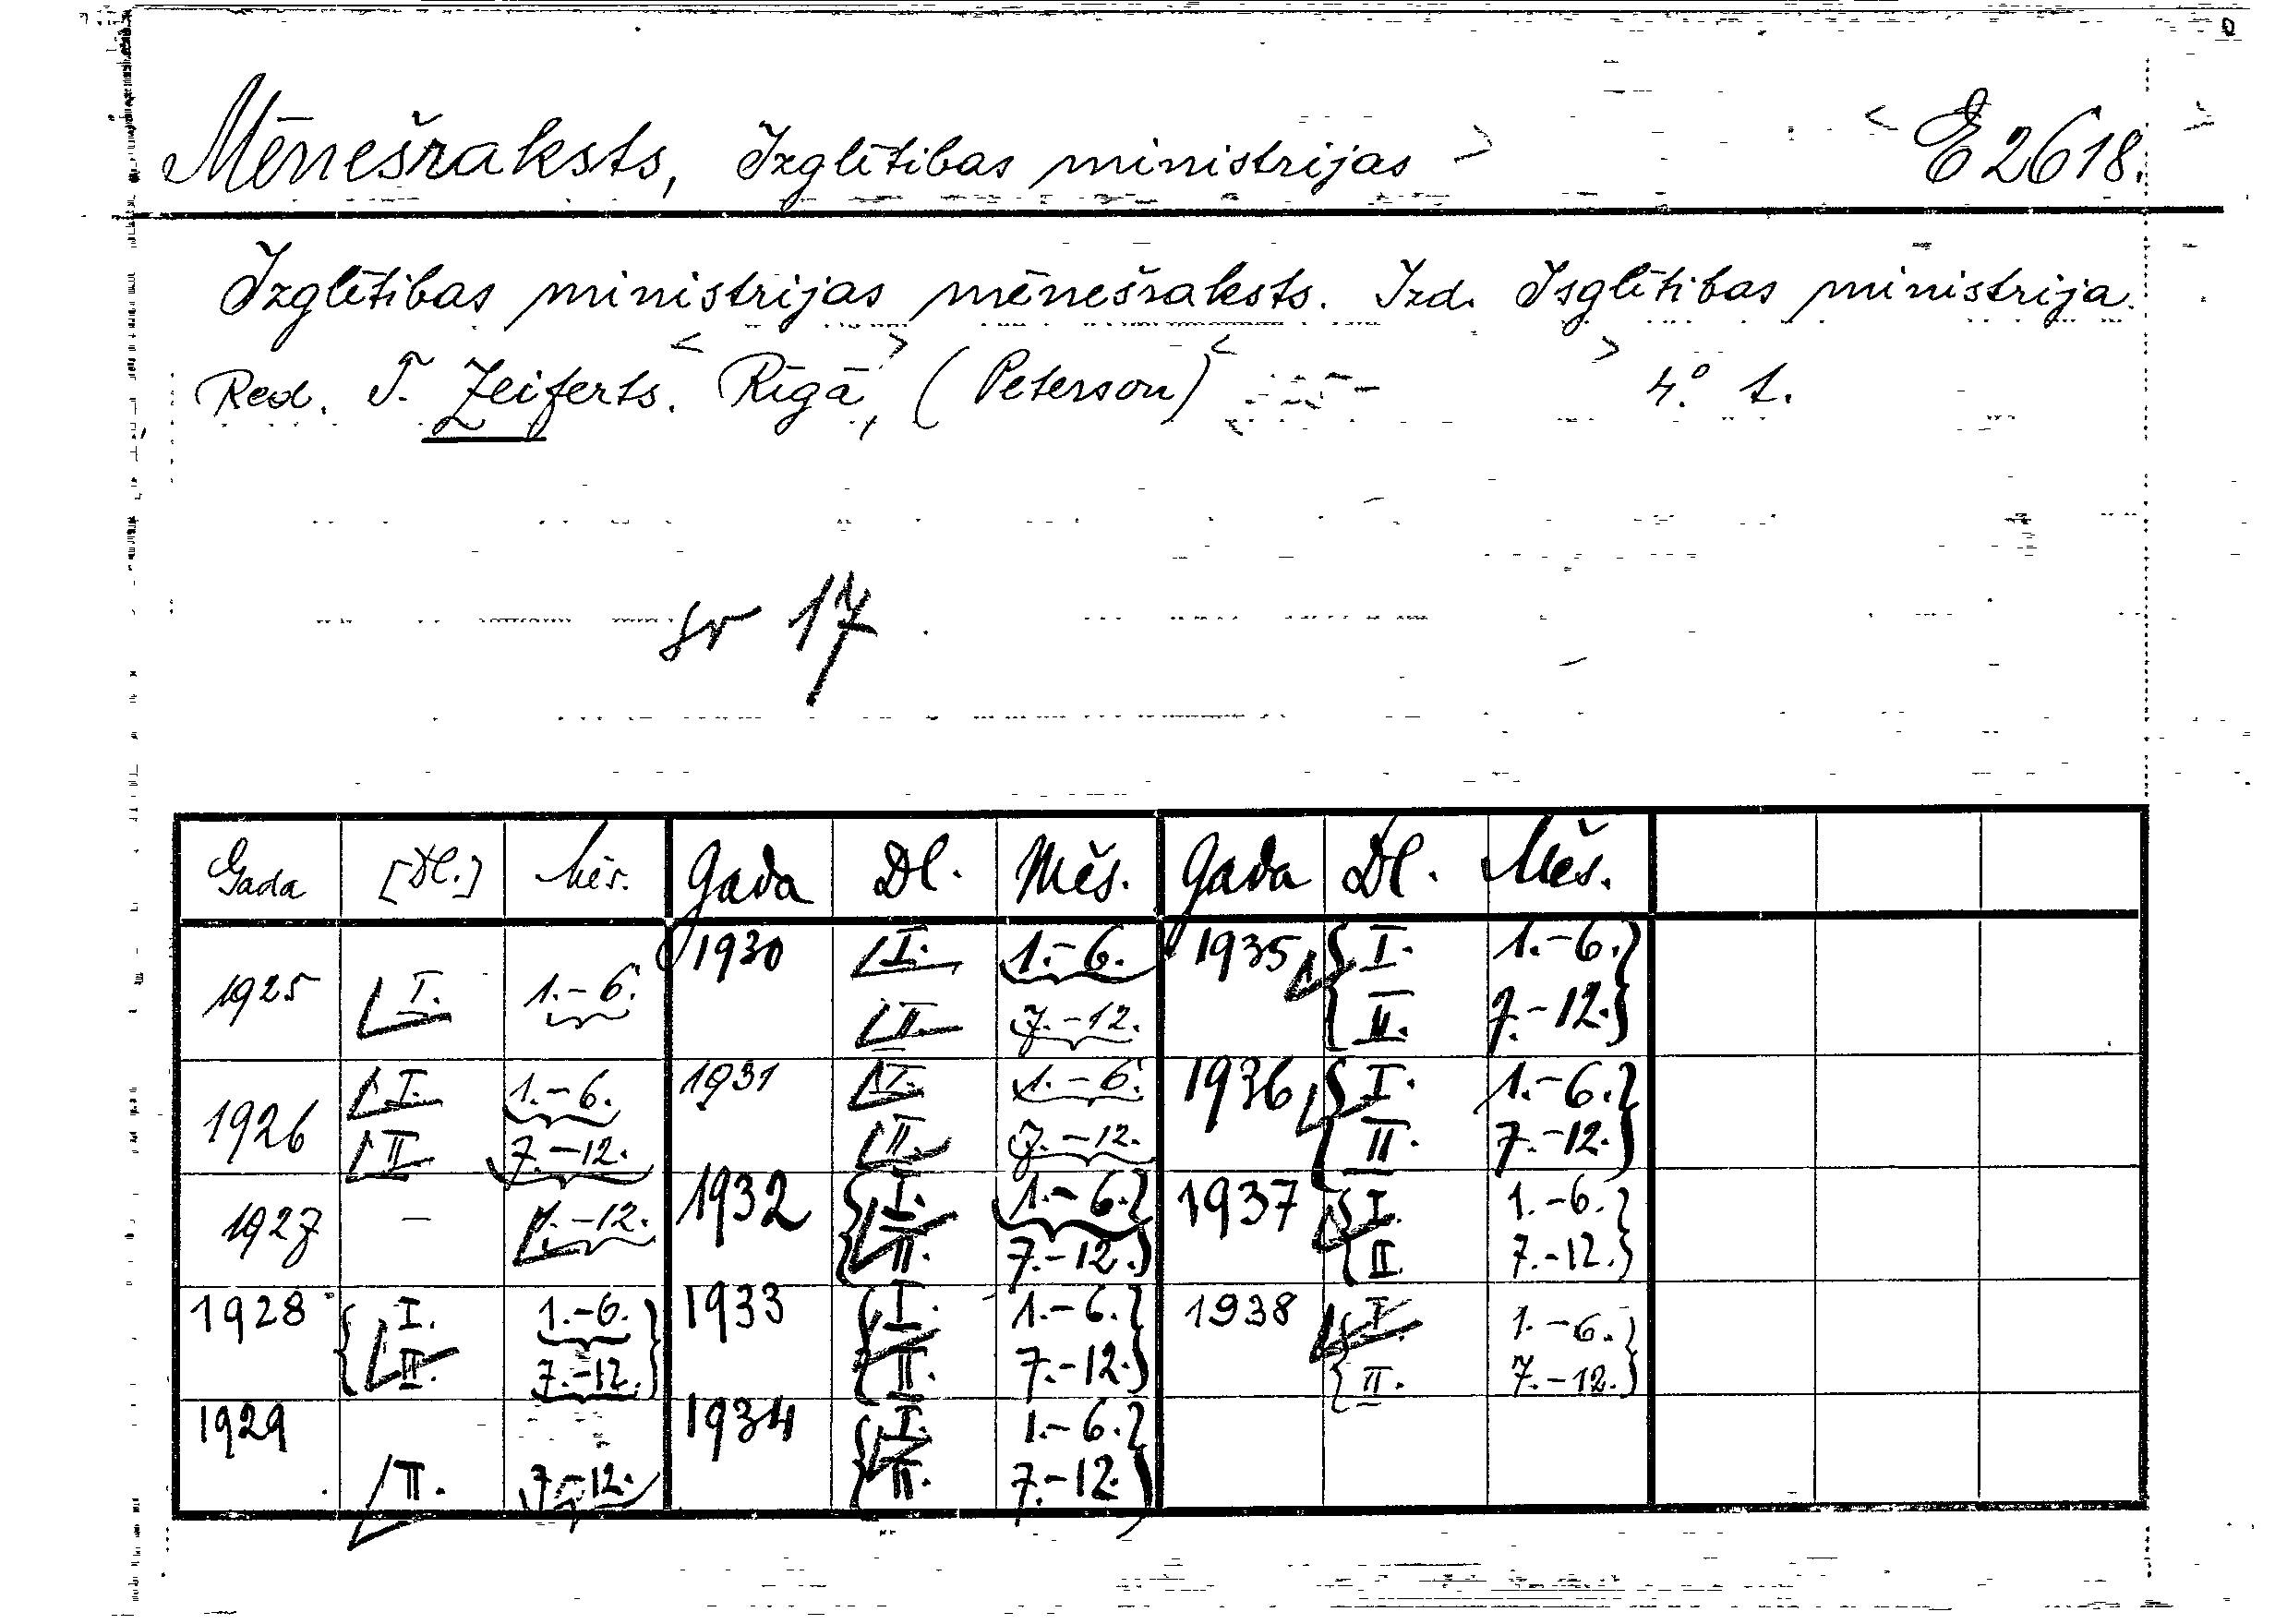 Mēnešraksts, Izglītības ministrijas E 2618.
Izglītības ministrijas mēnešraksts. Izd. Isglītības ministrija.
Red. T. Zeiferts. Rīgā, (Peterson) 4.° 1.
gr 17
Gada [Dl.] Mēs. Gada Dl. Mēs. Gada Dl. Mēs.
1925 I. 1.-6. 1930 I. 1.-6. 1935 I. 1.-6.
II. 7.-12. II. 7.-12.
1926 I. 1.-6. 1931 I. 1.-6. 1936 I. 1.-6.
II 7.-12. II. 7.-12. II. 7.-12.
1927 - 1.-12. 1932 I. 1.-6. 1937 I. 1.-6.
II. 7.-12. II. 7.-12.
1928 I. 1.-6. 1933 I. 1.-6. 1938 I. 1.-6.
II. 7.-12. II. 7.-12. II. 7.-12.
1929 1934 I. 1.-6.
II. 7.-12. II. 7.-12.